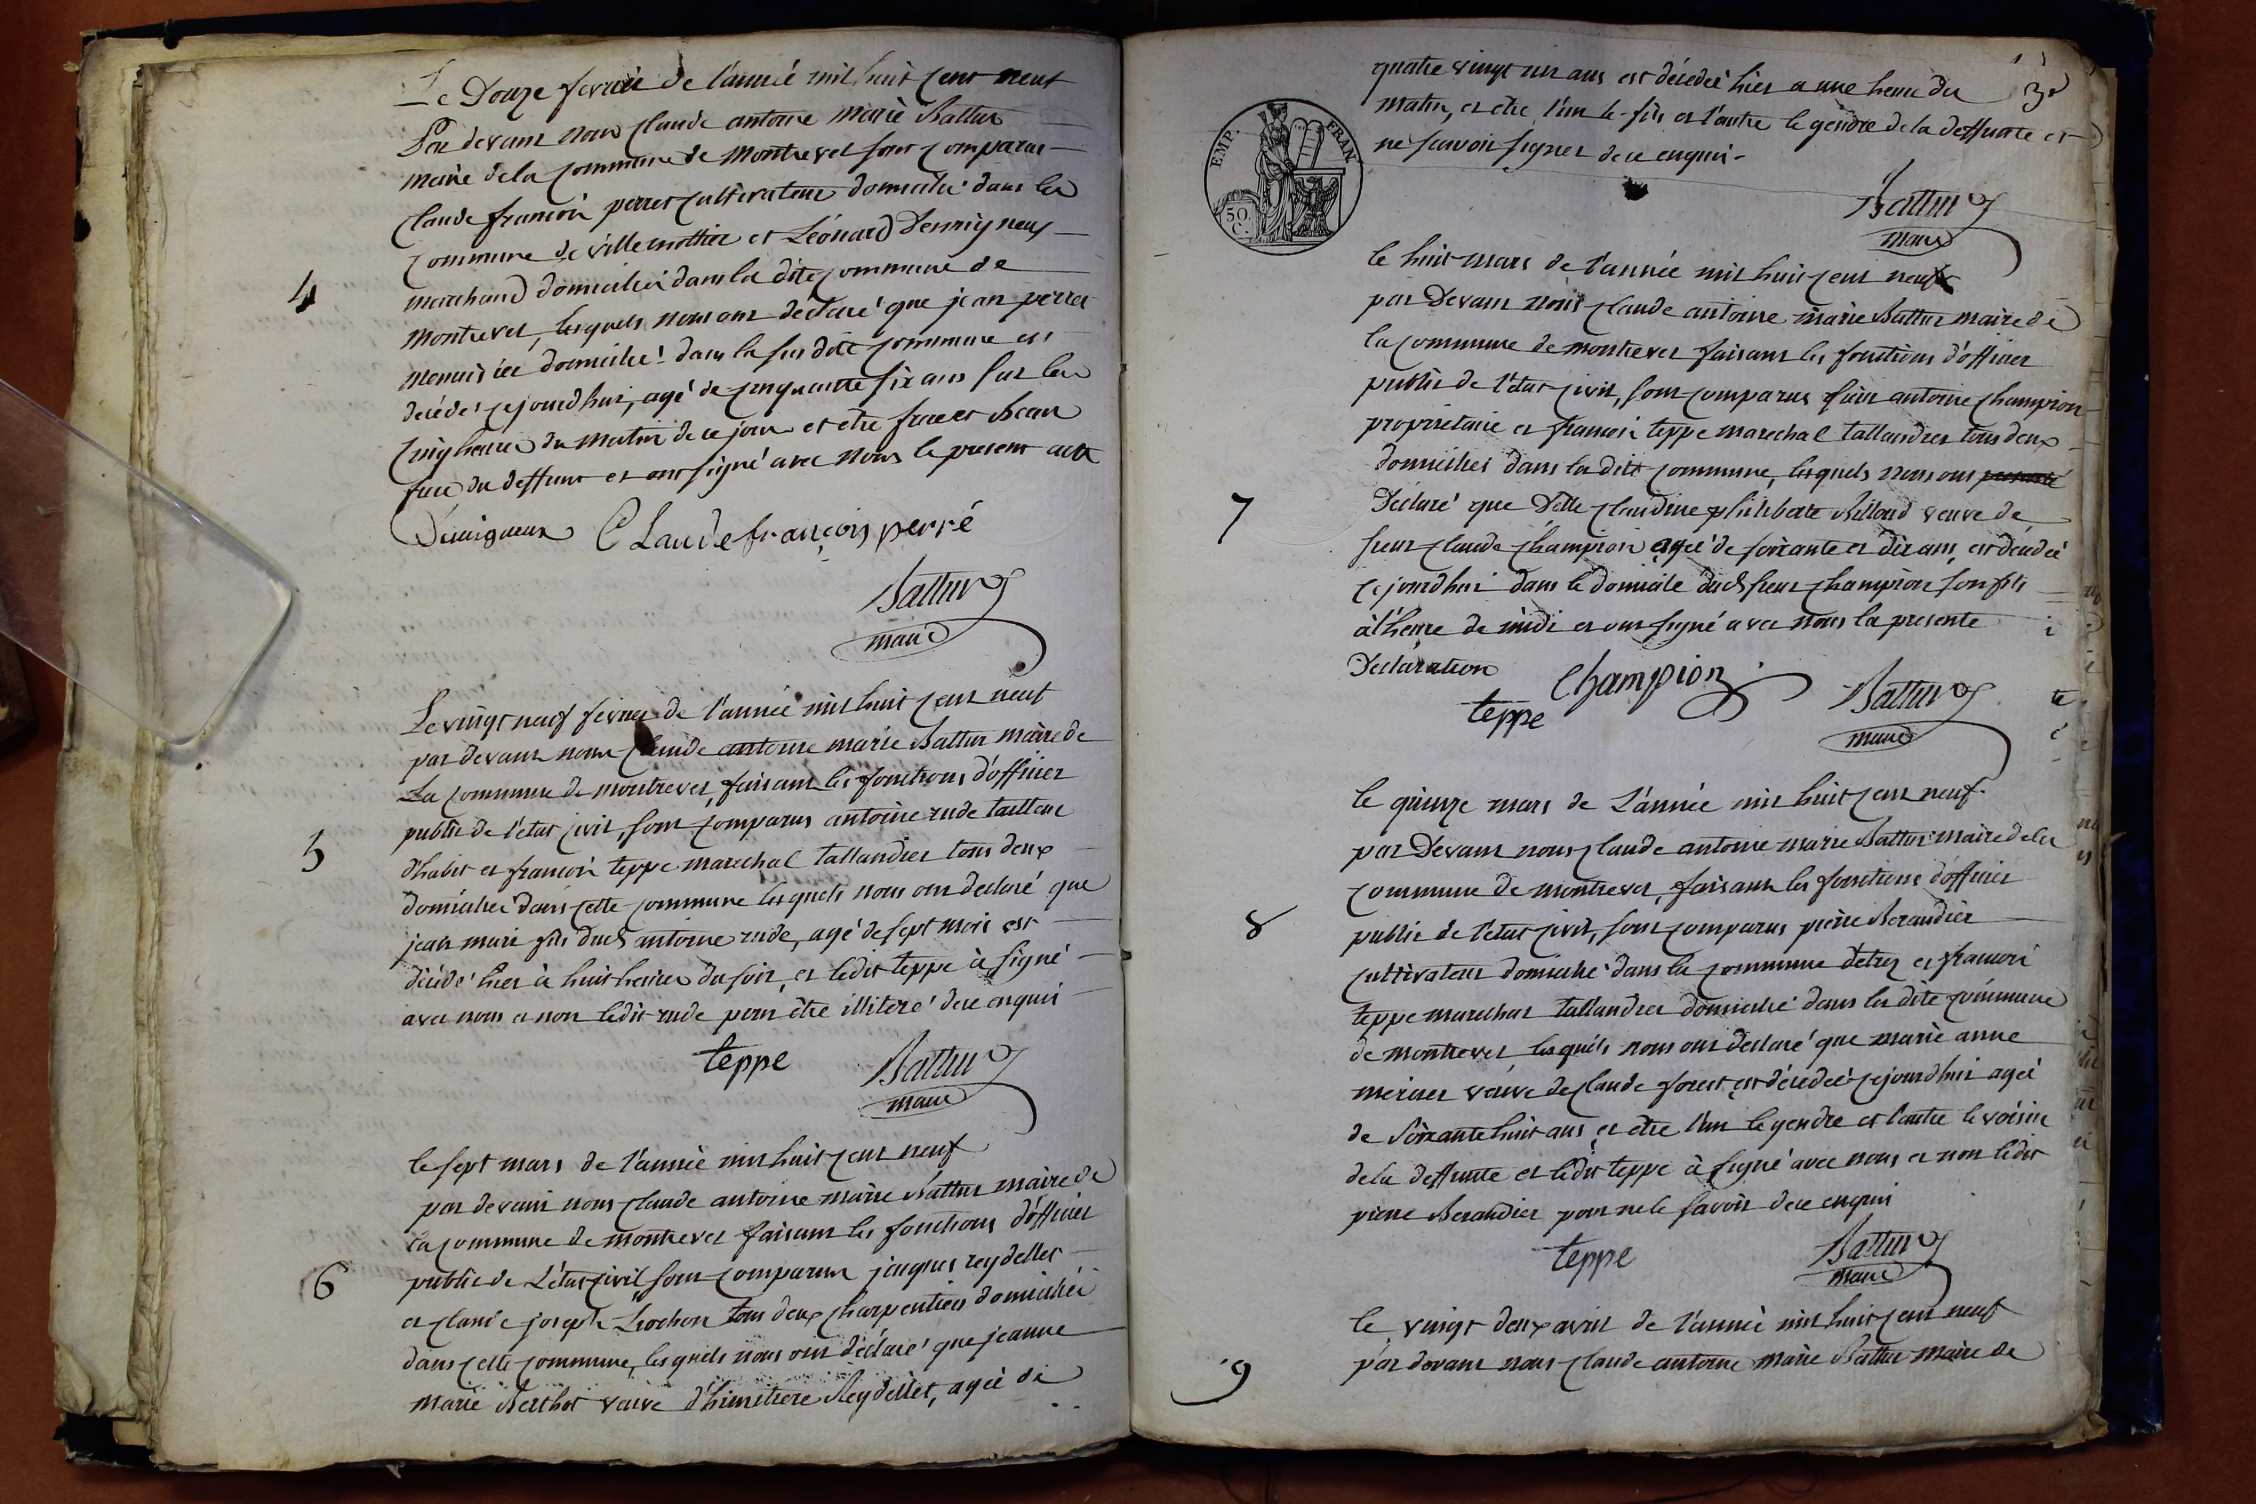 Le Douze fevrier de l'année mil huit cent neuf
Par devant nous Claude antoine Marie Battur
maire de la commune de Montrevel sont comparus
Claude francois perret cultivateur domicilié dans la
commune de villemottier et Léonard Demigneux
marchand domicilié dans la dite commune de
4
montrevel, lesquels nous ont déclaré que jean perret
menuisier domicilié dans la sus dite commune est
decédé cejourdhui, agé de cinquante six ans sur les
cinq heures du matin de ce jour et etre frere et Beau
frere du deffunt et ont signé avec nous le present acte
Demigneux Claude françois perré
Battur
maire
Le vingt neuf fevrier de l'année mil huit cent neuf
par devant nous Claude antoine marie Battur maire de
La commune de montrevel, faisant les fonctions d'officier
public de l'état civil, sont comparus antoine rude tailleur
5
d'habit et francois teppe marechal tallandier tous deux
domiciliés dans cette commune lesquels nous ont declaré que
jean marie fils dud. antoine rude, agé de sept mois est
décédé hier à huit heures du soir, et ledit teppe à signé
avec nous et non ledit rude pour être illiteré de ce enquis
teppe Battur
maire
le sept mars de l'année mil huit cent neuf
par devant nous Claude antoine marie Battur maire de
la commune de montrevel faisant les fonctions d'officier
public de L'état civil, sont comparus jacques reydellet
6
et claude joseph Lrochon tous deux charpentiers domiciliés
dans cette commune, lesquels nous ont déclaré que jeanne
marie Berthet veuve d'himetiere Reydellet, agée de
3e
quatre vingt un ans est décedée hier a une heure du
matin, et etre l'un le fils et l'autre le gendre de la deffunte et
ne scavoir signer de ce enquis
EMP. FRAN
50
C.
Battur
maire
le huit mars de l'année mil huit cent neuf
par Devant nous Claude antoine marie Battur maire de
la commune de montrevel faisant les fonctions d'officier
public de l'état civil, sont comparus sieur antoine Champion
proprietaire et francois teppe marechal tallandier tous deux
domiciliés dans la dite commune, lesquels nous ont
7
Déclaré que Delle Claudine philiberte Billoud veuve de
sieur Claude Champion agée de soixante et dix ans, est décedée
cejourdhui dans le domicile dud. sieur Champion son fils
à l'heure de midi et ont signé avec nous la presente
Déclaration Champion Battur
teppe maire
le quinze mars de L'année mil huit cent neuf.
par Devant nous Claude antoine marie Battur maire de la
commune de montrevel, faisant les fonctions d'officier
8
public de l'état civil, sont comparus pierre Beraudier
cultivateur domicilié dans la commune detrez et francois
teppe marechal tallandier domicilié dans la dite commune
de montrevel lesquels nous ont declaré que marie anne
mercier veuve de Claude forest est décedée cejourdhui agée
de soixante huit ans et etre l'un le gendre et l'autre le voisin
de la deffunte et ledit teppe à signé avec nous et non ledit
pierre Beraudier pour ne le savoir de ce enquis
teppe Battur
maire
le vingt deux avril de l'année mil huit cent neuf
9
par devant nous Claude antoine Marie Battur maire de